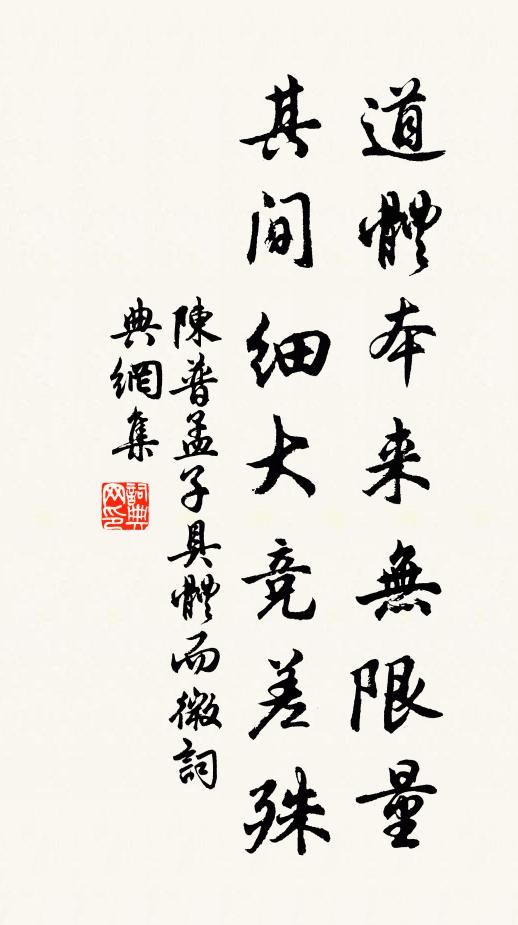 道體本来無限量
其间細大竞差殊
陳普孟子具體而微詞
典網集
詞典
网印